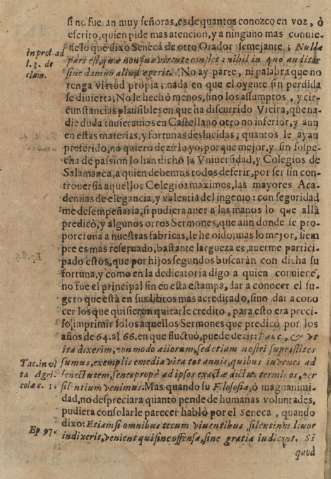 si no fuera muy señoras, es de quantos conozco en voz, ò
escrito, quien pide mas atencion, y a ninguno mas conuie-
ne lo que dixo Seneca de otro Orador semejante: Nulla
in pref. ad
pars est, quæ non sua virtute constet: nihil in quo auditor
l. 3. de
sine damno aliud egerit. No ay parte, ni palabra que no
clam.
tenga virtud propia; nada en que el oyente sin perdida
se diuierta; No le hechò menos, sino los assumptos, y cir-
cunstancias plausibles en que ha discurrido Vieira, que na-
die duda tuuieramos en Castellano otro no inferior, y aun
en estas materias, y fortunas deslucidas; quantos le ayan
preferido, no quiero dezirlo yo, porque mejor, y sin sospe-
cha de passion lo han dicho la Vniuersidad, y Colegios de
Salamanca, a quien debemos todos deferir, por ser sin con-
trouersia aquellos Colegios maximos, las mayores Acade-
mias de elegancia, y valentia del ingenio: con seguridad
me desempeñaria, si pudiera auer a las manos lo que allà
predicò, y algunos otros Sermones, que aun donde le pro-
porciona a nuestras fabricas, le he oido; mas lo mejor, siem-
pre es mas reseruado, bastante largueza es, auerme partici-
pado estos, que por hijos segundos buscaràn con dicha su
fortuna, y como en la dedicatoria digo a quien conuiene,
no fue el principal fin en esta estampa, dar a conocer el su-
geto que està en sus libros mas acreditado, sino dar a cono-
cer los que quisieron quitarle credito, para esto era preci-
so, imprimir solos aquellos Sermones que predicò por los
años de 64. al 66. en que fluctuò, puede dezirse, &c, & vt
ita dixerim, non modo aliorum, sed etiam nostri superstites
Tac. in vi
sumus, exemptis è media vita tot annis, quibus iuuenes ad
ta Agri-
senectutem, senes prope ad ipsos exactæ ætatis terminos, per
colæ c. 1.
silentium venimus. Mas quando su Filosofia, ò magnanimi-
dad, no despreciara quanto pende de humanas voluntades,
pudiera consolarle parecer hablò por el Seneca, quando
Ep. 97.
dixo: Etiam si omnibus tecum viuentibus silentium liuor
indixerit, venient qui sine offensa, sine gratia iudicent. Si
quod